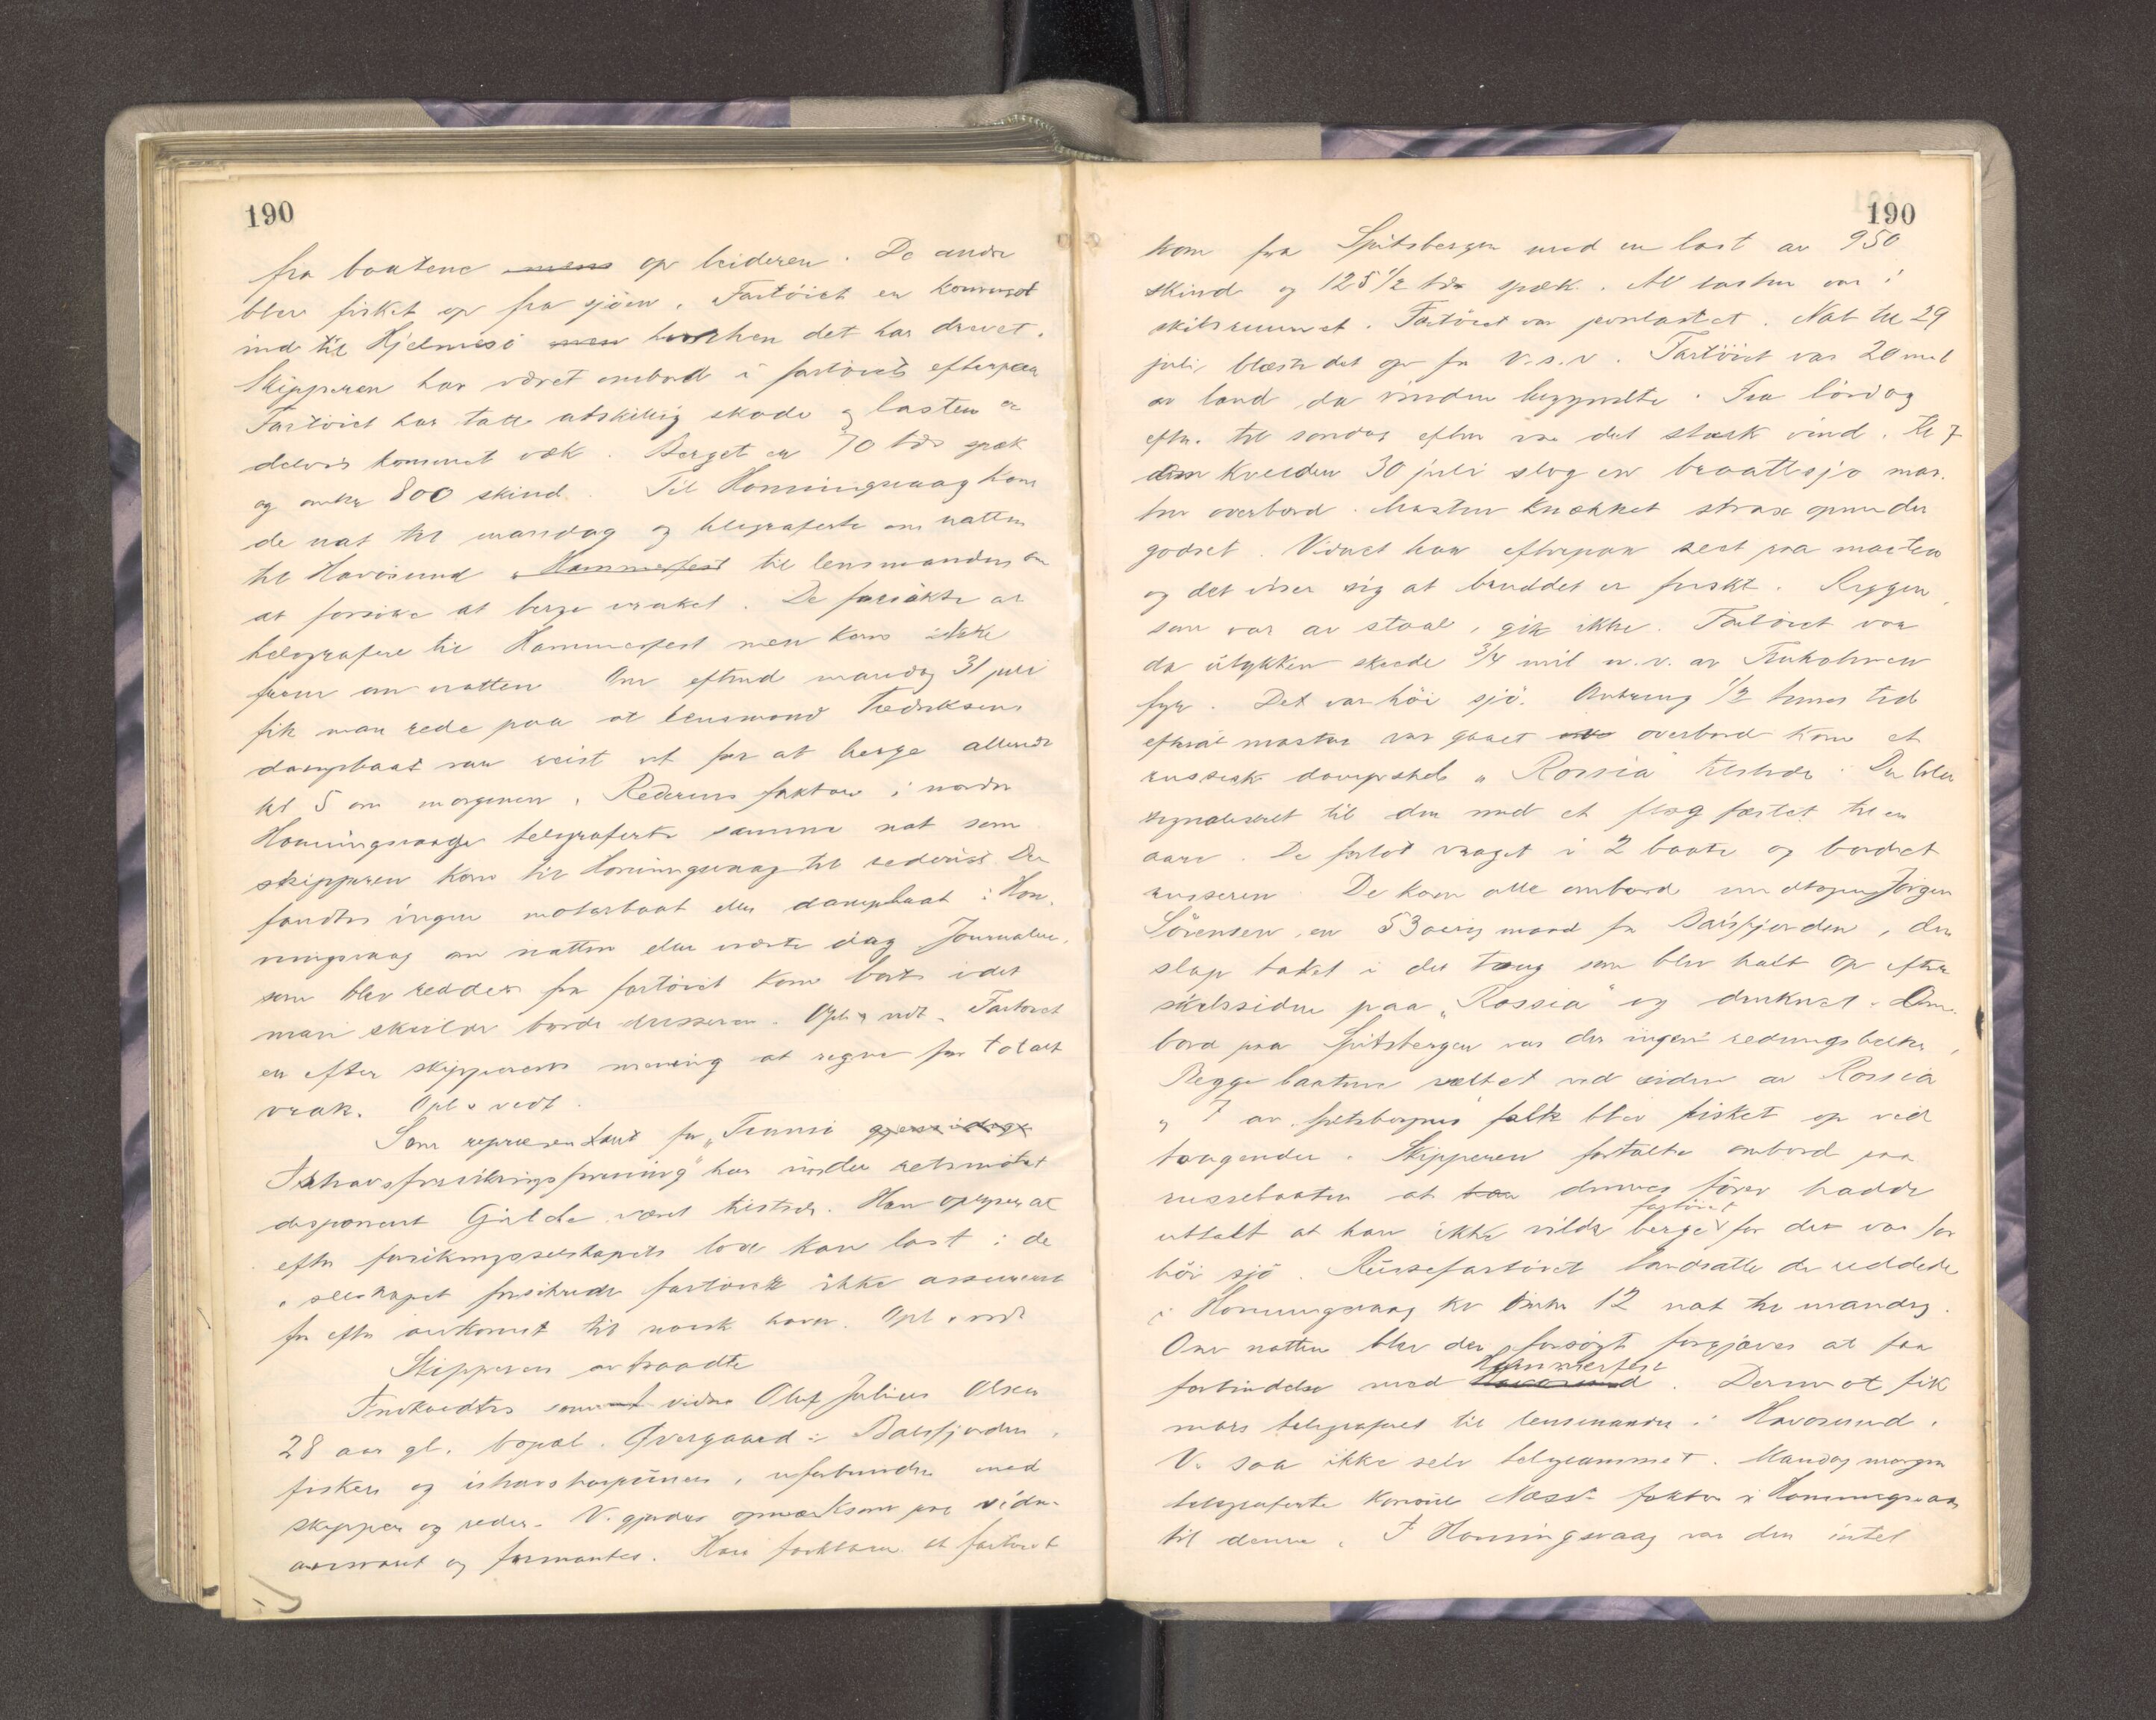 190
fra baatene mens op leideren. De andre
blev fisket op fra sjöen. Fartöiet er kommet
ind til Hjelmesö men hvorhen det har drevet.
Skipperen har været ombord i fartöiet efterpaa
Fartöiet har tatt adskillig skade og lasten er
delvis kommet væk. Berget er 70 tdr spæk
og omkr 800 skind. Til Honningsvaag kom
de nat til mandag og telegraferte om natten
til Havösund Hammerfest til lensmanden om
at forsöke at berge vraket. De forsökte at
telegrafere til Hammerfest men kom ikke
frem om natten. Om eftermd mandag 31 juli
fik man rede paa at lensmand Fredriksens
dampbaat var reist ut for at berge allerede
kl 5 om morgenen. Rederens faktor i
Honningsvaag telegraferte samme nat som
skipperen kom til Honningsvaag til rederiet. Der
fandtes ingen motorbaat eller dampbaat i Hon-
ningsvaag om natten eller næste dag. Journalen
som blev reddet fra fartöiet kom bort idet
man skulde borde russeren. Opl. vedt. Fartöiet
er efter skipperens mening at regne for totalt
vrak. Opl. vedt.
Som repræsentant for "Tromsö gjensidige
Ishavsforsikringsforening" har under retsmötet
disponent Gjæda været tilstede. Han oplyser at
efter forsikringsselskapets love kan last i de
i selskapet forsikrede fartöier ikke assureres
för efter ankomst til norsk havn. Opl. vedt
Skipperen avtraadte
Fremstedtes som vidne Oluf Julius Olsen
28 aar gl. bopæl Övergaard i Balsfjorden,
fisker og ishavsharpuner, uforbundet med
skipper og reder. V. gjordes opmerksom paa vidne-
ansvaret og formantes. Han forklarer at fartöiet
190
kom fra Spitsbergen med en last av 950
skind og 125 1/2 tdr spæk. Al lasten var i
skibsrummet. Fartöiet var jevnlastet. Nat til 29
juli blæste det op fra V.s.v. Fartöiet var 20 mil
av land da vinden begyndte. Fra lördag
efterm. til söndag efterm var det sterk vind. Kl 7
om kvelden 30 juli slog en braattsjö mas-
ten overbord. Masten knækket straks opunder
godset. Vidnet har efterpaa seet paa masten
og det viser sig at bruddet er friskt. Riggen,
som var av staal, gik ikke. Fartöiet var
da ulykken skeede 3/4 mil n.v. av Fruholmen
fyr. Det var höi sjö. Omkring 1/2 times tid
efterat masten var gaaet overbord kom et
russisk dampskib "Rossia" tilstede. Der blev
signalisert til den med et flag fæstet til en
aare. De forlot vraget i 2 baate og bordet
russeren. De kom alle ombord undtagen Jörgen
Sörensen, en 53 aarig mand fra Balsfjorden, der
slap taket i det taug som blev halt op efter
skibssiden paa "Rossia" og druknet. Om-
bord paa Spitsbergen var der ingen redningsbelter,
Begge baatene væltet ved siden av Rossia
og 7 av "Spitsbergens" folk blev fisket op ved
taugender. Skipperen fortalte ombord paa
russebaaten at dennes förer hadde
uttalt at han ikke vilde berge fartöiet for det var for
höi sjö. Russefartöiet landsatte de reddede
i Honningsvaag kl omkr 12 nat til mandag.
Om natten blev der forsögt forgjæves at faa
forbindelse med Havösund Hammerfest. Derimot fik
man telegrafert til lensmanden i Havösund.
V. saa ikke selv telegrammet. Mandag morgen
telegraferte Næss faktor i Honningsvaag
til denne. I Honningsvaag var der intet